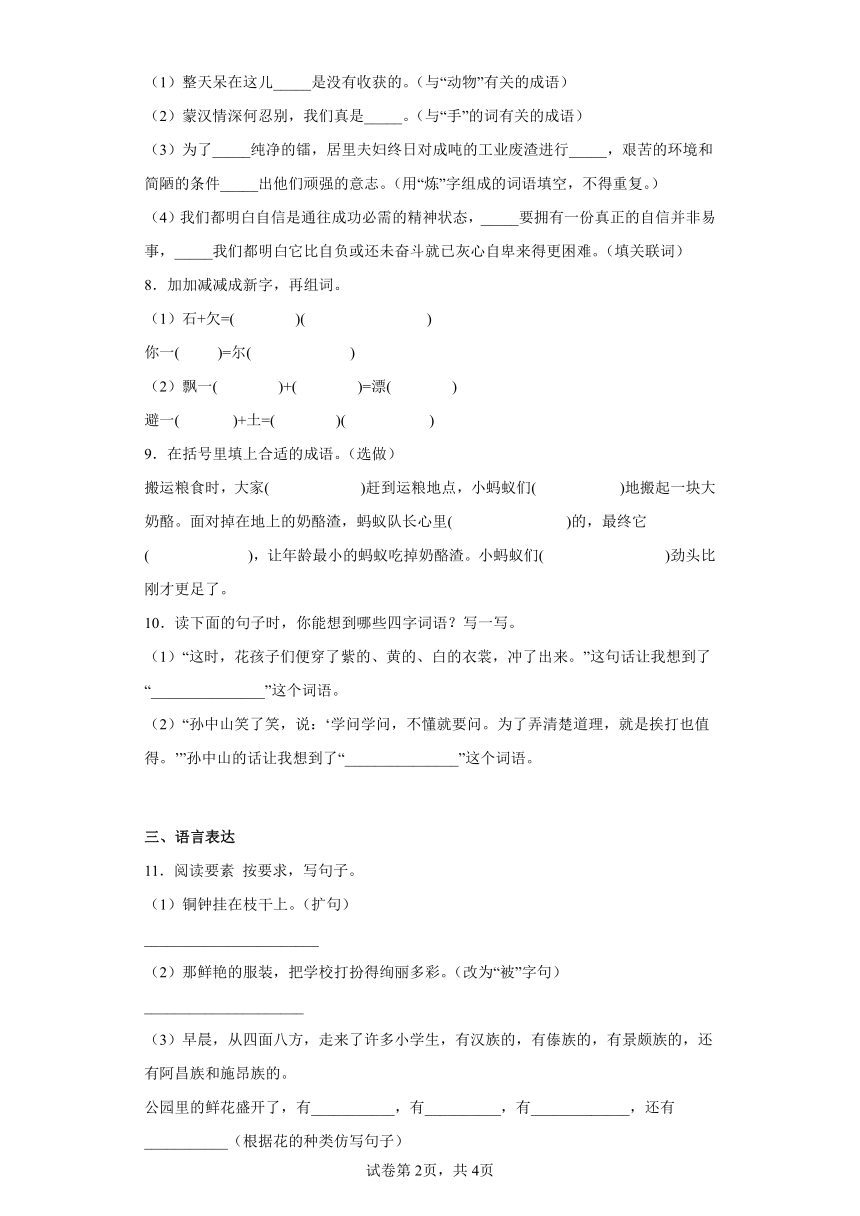 （1）整天呆在这儿_____是没有收获的。（与“动物”有关的成语）
（2）蒙汉情深何忍别，我们真是_____。（与“手”的词有关的成语）
（3）为了_____纯净的镭，居里夫妇终日对成吨的工业废渣进行_____，艰苦的环境和
简陋的条件_____出他们顽强的意志。（用“炼”字组成的词语填空，不得重复。）
（4）我们都明白自信是通往成功必需的精神状态，_____要拥有一份真正的自信并非易
事，_____我们都明白它比自负或还未奋斗就已灰心自卑来得更困难。（填关联词）
8．加加减减成新字，再组词。
（1）石+欠=( )( )
你一( )=尔( )
（2）飘一( )+( )=漂( )
避一( )+土=( )( )
9．在括号里填上合适的成语。（选做）
搬运粮食时，大家( )赶到运粮地点，小蚂蚁们( )地搬起一块大
奶酪。面对掉在地上的奶酪渣，蚂蚁队长心里( )的，最终它
( )，让年龄最小的蚂蚁吃掉奶酪渣。小蚂蚁们( )劲头比
刚才更足了。
10．读下面的句子时，你能想到哪些四字词语？写一写。
（1）“这时，花孩子们便穿了紫的、黄的、白的衣裳，冲了出来。”这句话让我想到了
“_______________”这个词语。
（2）“孙中山笑了笑，说：‘学问学问，不懂就要问。为了弄清楚道理，就是挨打也值
得。’”孙中山的话让我想到了“_______________”这个词语。
三、语言表达
11．阅读要素 按要求，写句子。
（1）铜钟挂在枝干上。（扩句）
_______________________
（2）那鲜艳的服装，把学校打扮得绚丽多彩。（改为“被”字句）
_____________________
（3）早晨，从四面八方，走来了许多小学生，有汉族的，有傣族的，有景颇族的，还
有阿昌族和施昂族的。
公园里的鲜花盛开了，有___________，有__________，有_____________，还有
___________（根据花的种类仿写句子）
试卷第 2页，共 4页